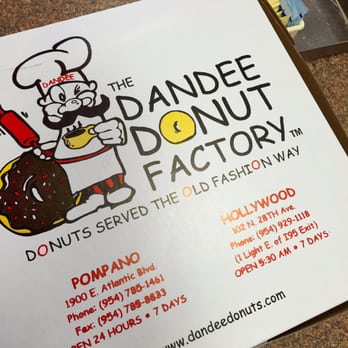 DANDEE
THE
DANDEE
DONUT
FACTORY™
DONUTS SERVED THE OLD FASHION WAY
POMPANO
1900 E. Atlantic Blvd.
Phone: (954) 785-1461
Fax: (954) 785-8833
PEN 24 HOURS • 7 DAYS
HOLLYWOOD
102 N. 28TH Ave.
Phone: (954) 929-1118
(1 Light E. of I95 Exit)
OPEN 5:30 AM • 7 DAYS
www.dandeedonuts.com